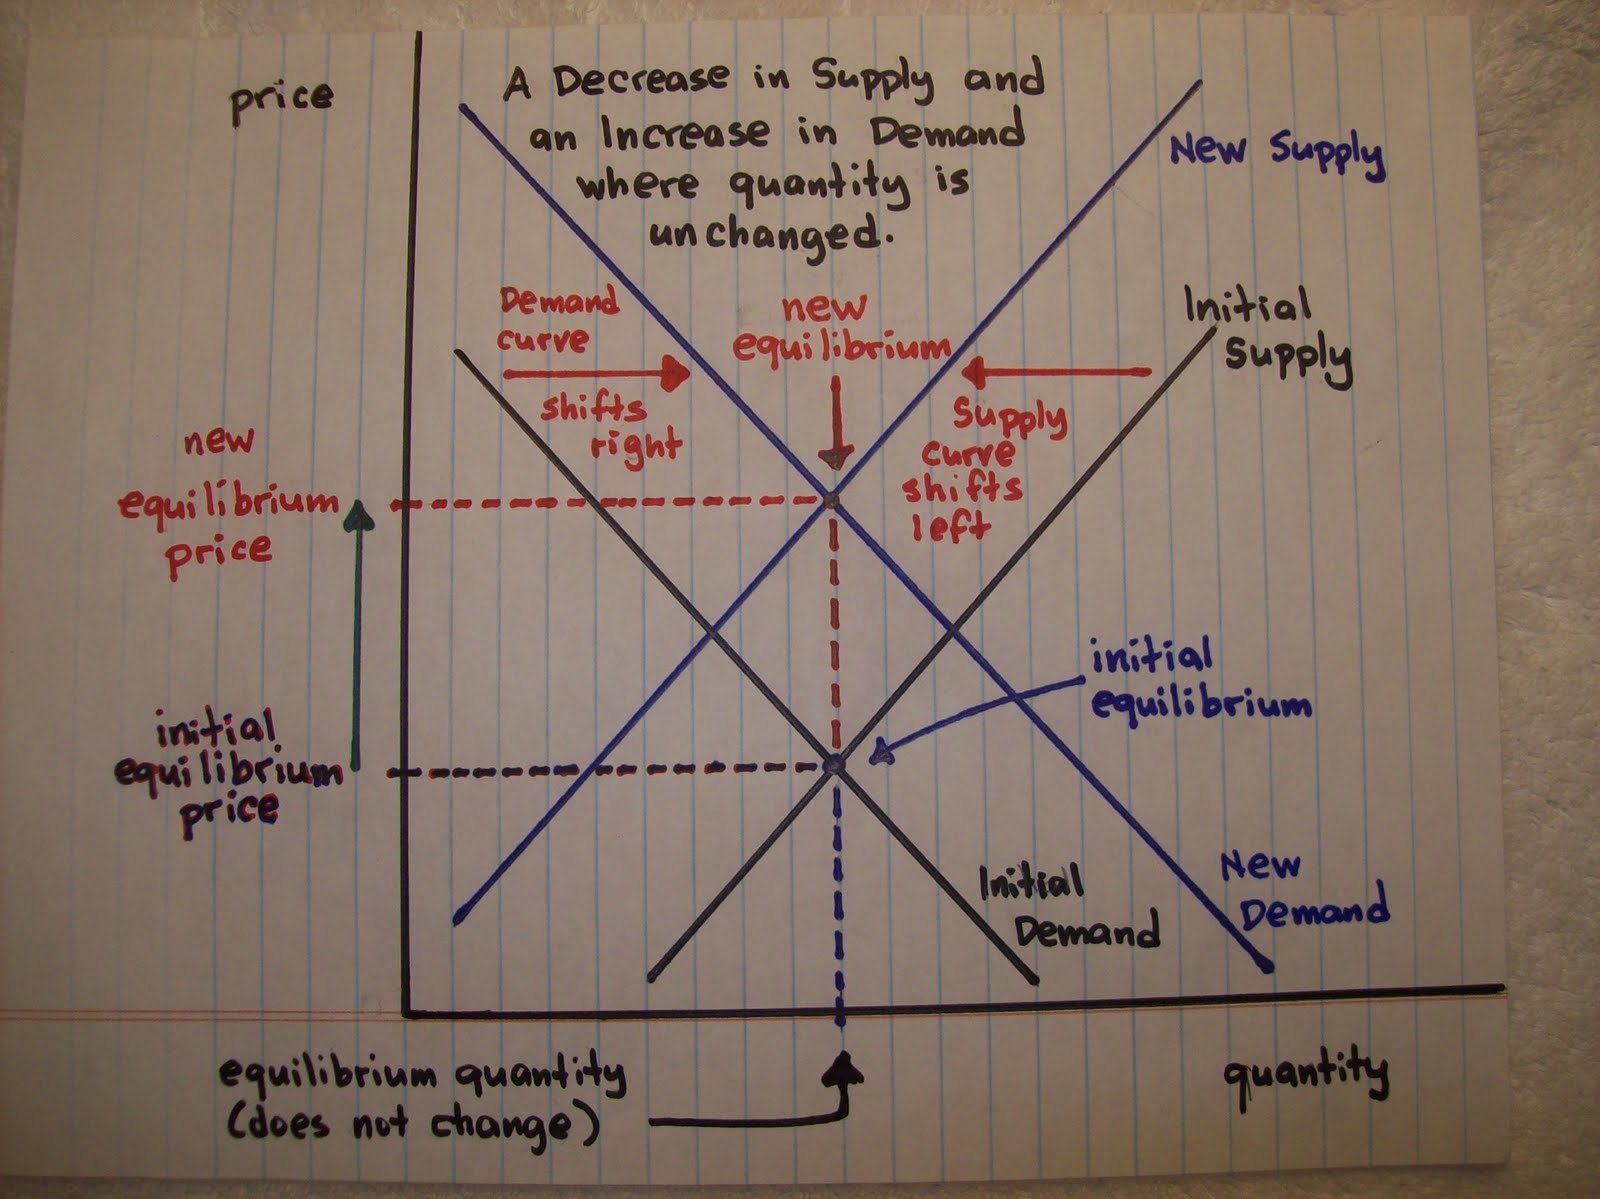 price
A Decrease in Supply and
an Increase in Demand
where quantity is
unchanged.
New Supply
Demand
curve
shifts
right
new
equilibrium
Initial
Supply
Supply
curve
shifts
left
new
equilibrium
price
initial
equilibrium
initial
equilibrium
price
Initial
Demand
New
Demand
equilibrium quantity
(does not change)
quantity